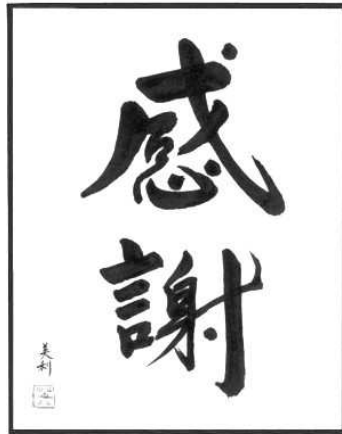 感謝
美利